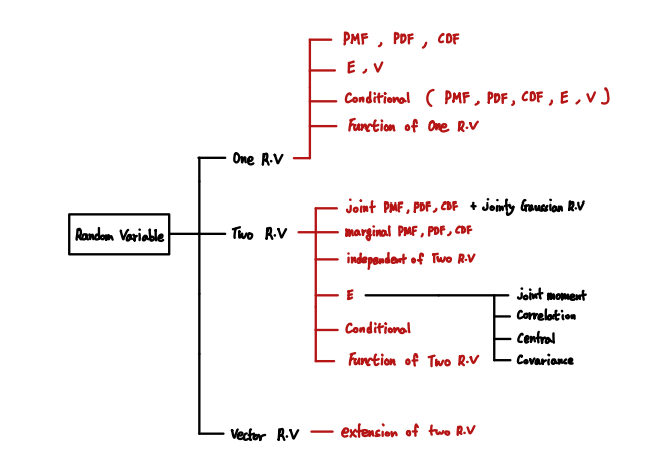 Random Variable
One R.V
PMF, PDF, CDF
E, V
Conditional (PMF, PDF, CDF, E, V)
Function of One R.V
Two R.V
joint PMF, PDF, CDF + Jointy Gaussian R.V
marginal PMF, PDF, CDF
independent of Two R.V
E
joint moment
Correlation
Central
Covariance
Conditional
Function of Two R.V
Vector R.V
extension of two R.V